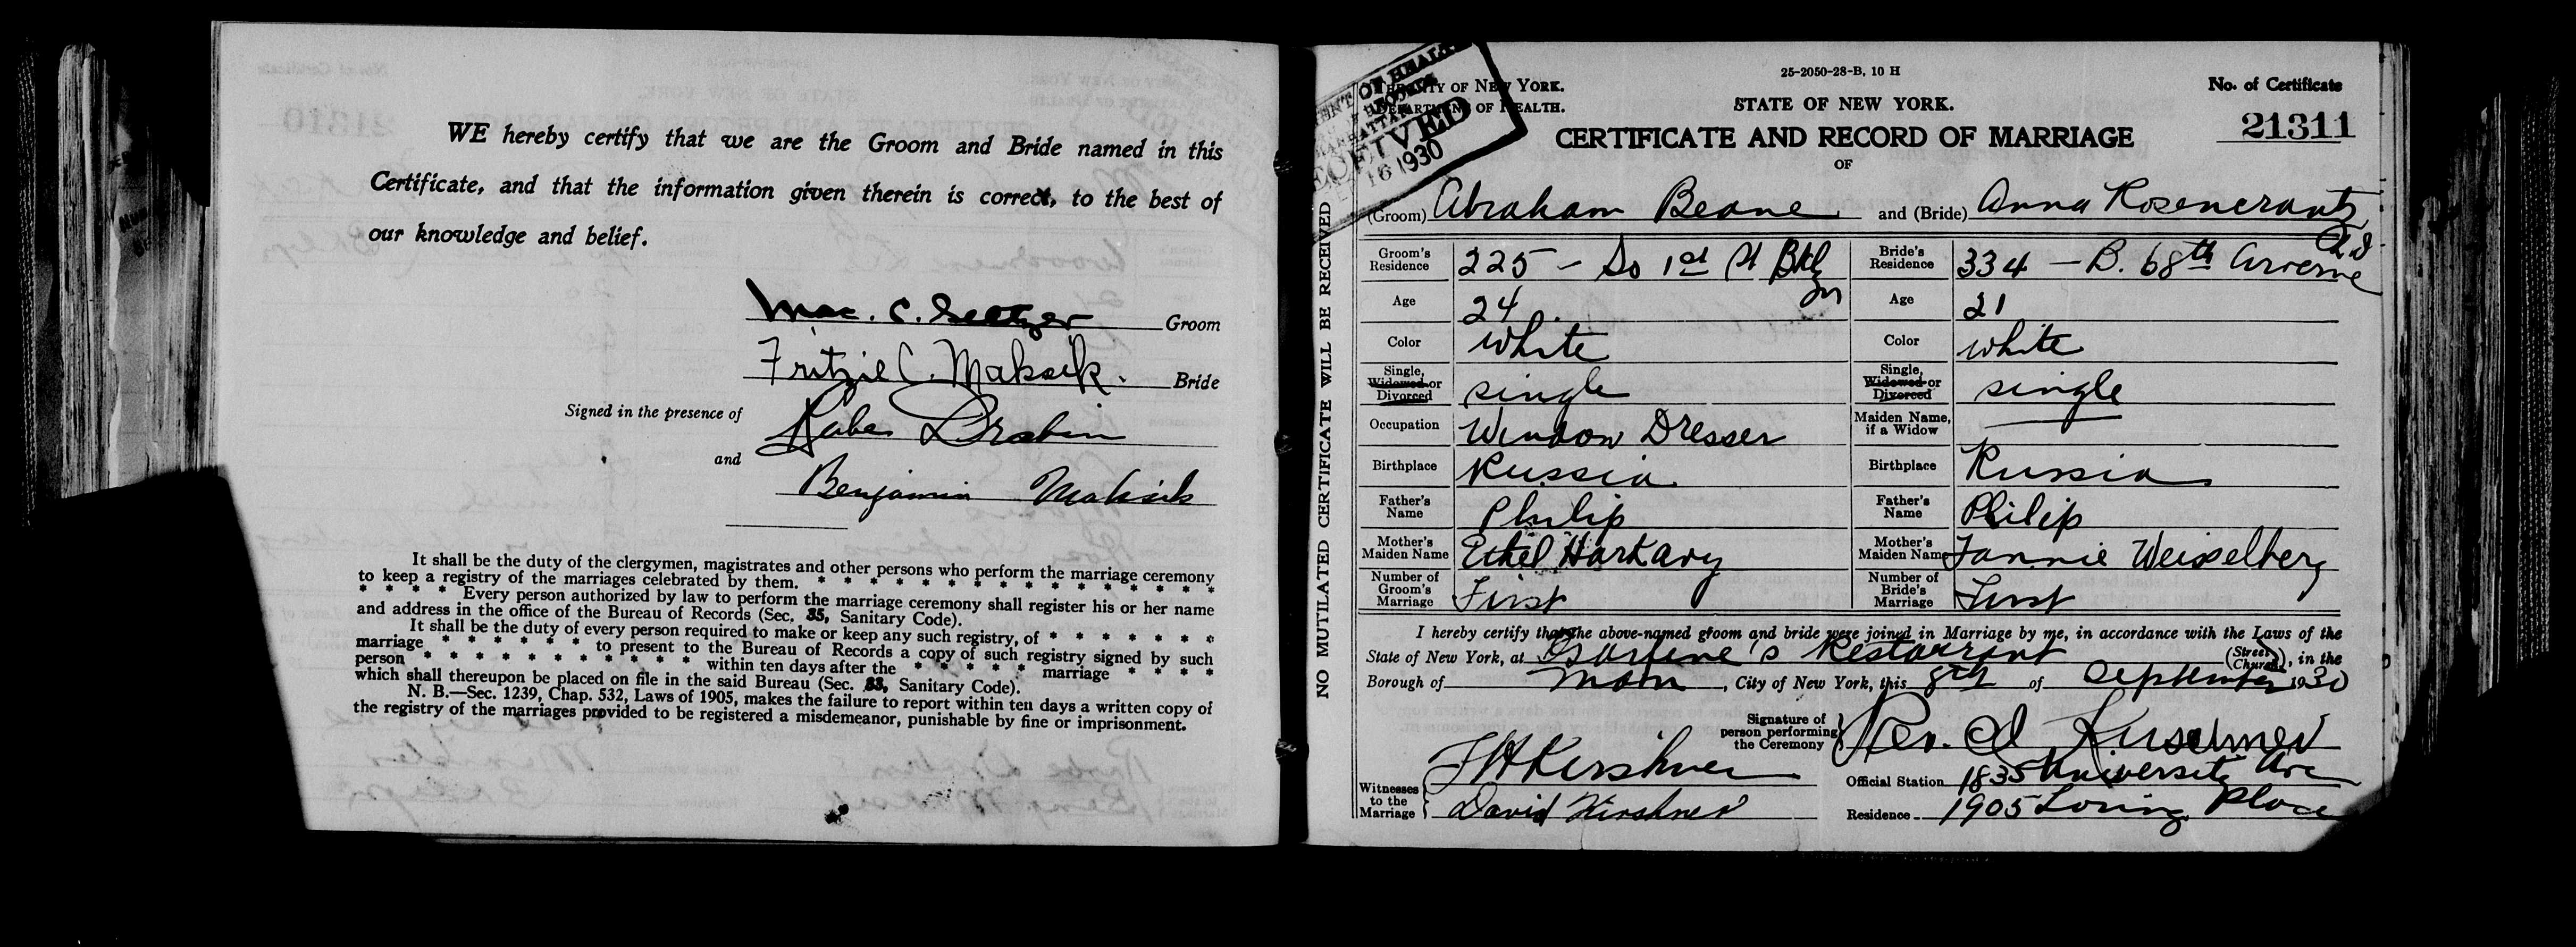 WE hereby certify that we are the Groom and Bride named in this
Certificate, and that the information given therein is correct, to the best of
our knowledge and belief.
Mac. C. Seltzer Groom
Fritzie C. Maksik. Bride
Signed in the presence of
and
Benjamin Maksik
It shall be the duty of the clergymen, magistrates and other persons who perform the marriage ceremony
to keep a registry of the marriages celebrated by them. * * * * * * * * * * * * * * * *
* * * * Every person authorized by law to perform the marriage ceremony shall register his or her name
and address in the office of the Bureau of Records (Sec. 35, Sanitary Code).
It shall be the duty of every person required to make or keep any such registry, of * * * * * * *
marriage * * * * * * to present to the Bureau of Records a copy of such registry signed by such
person * * * * * * * * * * * within ten days after the * * * * * marriage * * * *
which shall thereupon be placed on file in the said Bureau (Sec. 33, Sanitary Code).
N. B.—Sec. 1239, Chap. 532, Laws of 1905, makes the failure to report within ten days a written copy of
the registry of the marriages provided to be registered a misdemeanor, punishable by fine or imprisonment.
NO MUTILATED CERTIFICATE WILL BE RECEIVED
25-2050-28-B, 10 H
No. of Certificate
21311
CITY OF NEW YORK.
DEPARTMENT OF HEALTH.
16 1930
STATE OF NEW YORK.
CERTIFICATE AND RECORD OF MARRIAGE
OF
(Groom) Abraham Beane and (Bride) Anna Rosencrantz
Groom's Residence 225 - So 1st St Bklyn Bride's Residence 334 - B. 68th Arverne
Age 24 Age 21
Color White Color white
Single, Widowed or Divorced single Single, Widowed or Divorced single
Occupation Window Dresser Maiden Name, if a Widow —
Birthplace Russia Birthplace Russia
Father's Name Philip Father's Name Philip
Mother's Maiden Name Ethel Harkavy Mother's Maiden Name Fannie Weiselberg
Number of Groom's Marriage First Number of Bride's Marriage First
I hereby certify that the above-named groom and bride were joined in Marriage by me, in accordance with the Laws of the
State of New York, at Garfine's Restaurant (Street Church), in the
Borough of Man, City of New York, this 8th of September 1930
Signature of person performing the Ceremony Rev.
Witnesses to the Marriage
Kirshner
David Kirshner
Official Station 1835 University Ave
Residence 1905 Loring Place